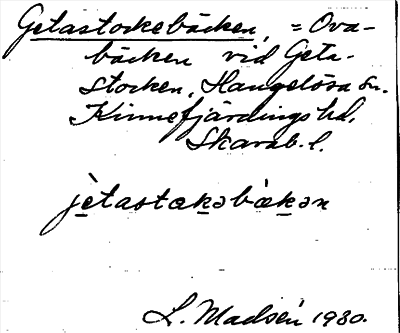 Getastockebäcken, = Ova-
bäcken vid Geta-
stocken, Hangelösa sn.
Kinnefjärdings hd.
Skarab. l.
jètastɑkəbækən
L. Madsén 1930.